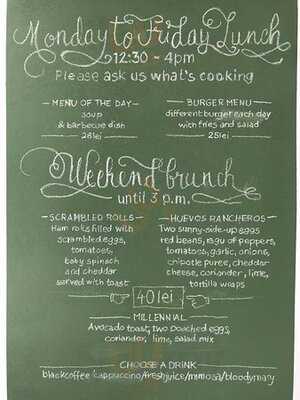 Monday to Friday Lunch
12:30 - 4pm
Please ask us what's cooking
MENU OF THE DAY
soup
& barbecue dish
26lei
BURGER MENU
different burger each day
with fries and salad
25lei
Weekend brunch
until 3 p.m.
SCRAMBLED ROLLS
Ham rolls filled with
scrambled eggs,
tomatoes,
baby spinach
and cheddar
served with toast
HUEVOS RANCHEROS
Two sunny-side-up eggs
red beans, ragu of peppers,
tomatoes, garlic, onions,
chipotle puree, cheddar
cheese, coriander, lime,
tortilla wraps
40lei
MILLENNIAL
Avocado toast, two poached eggs,
coriander, lime, salad mix
CHOOSE A DRINK
black coffee/cappuccino/fresh juice/mimosa/bloody mary